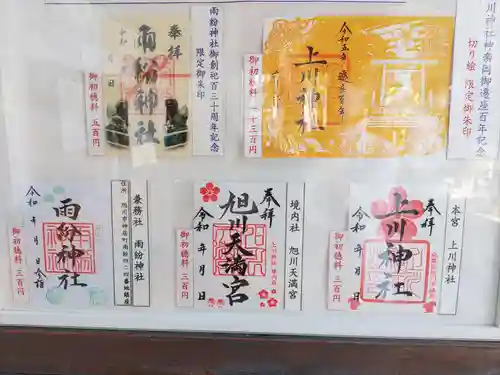 雨紛神社御創祀百三十周年記念
限定御朱印
奉拝
雨紛神社
令和 月 日
御初穂料 五百円
川神社神楽岡御遷座百年記念
切り絵 限定御朱印
令和五年
上川神社
御初穂料 一千三百円
本宮 上川神社
奉拝
上川神社
令和 年 月 日
御初穂料 三百円
境内社 旭川天満宮
奉拝
旭川天満宮
令和 年 月 日
御初穂料 三百円
兼務社 雨紛神社
雨紛神社
令和 年 月 日
御初穂料 三百円